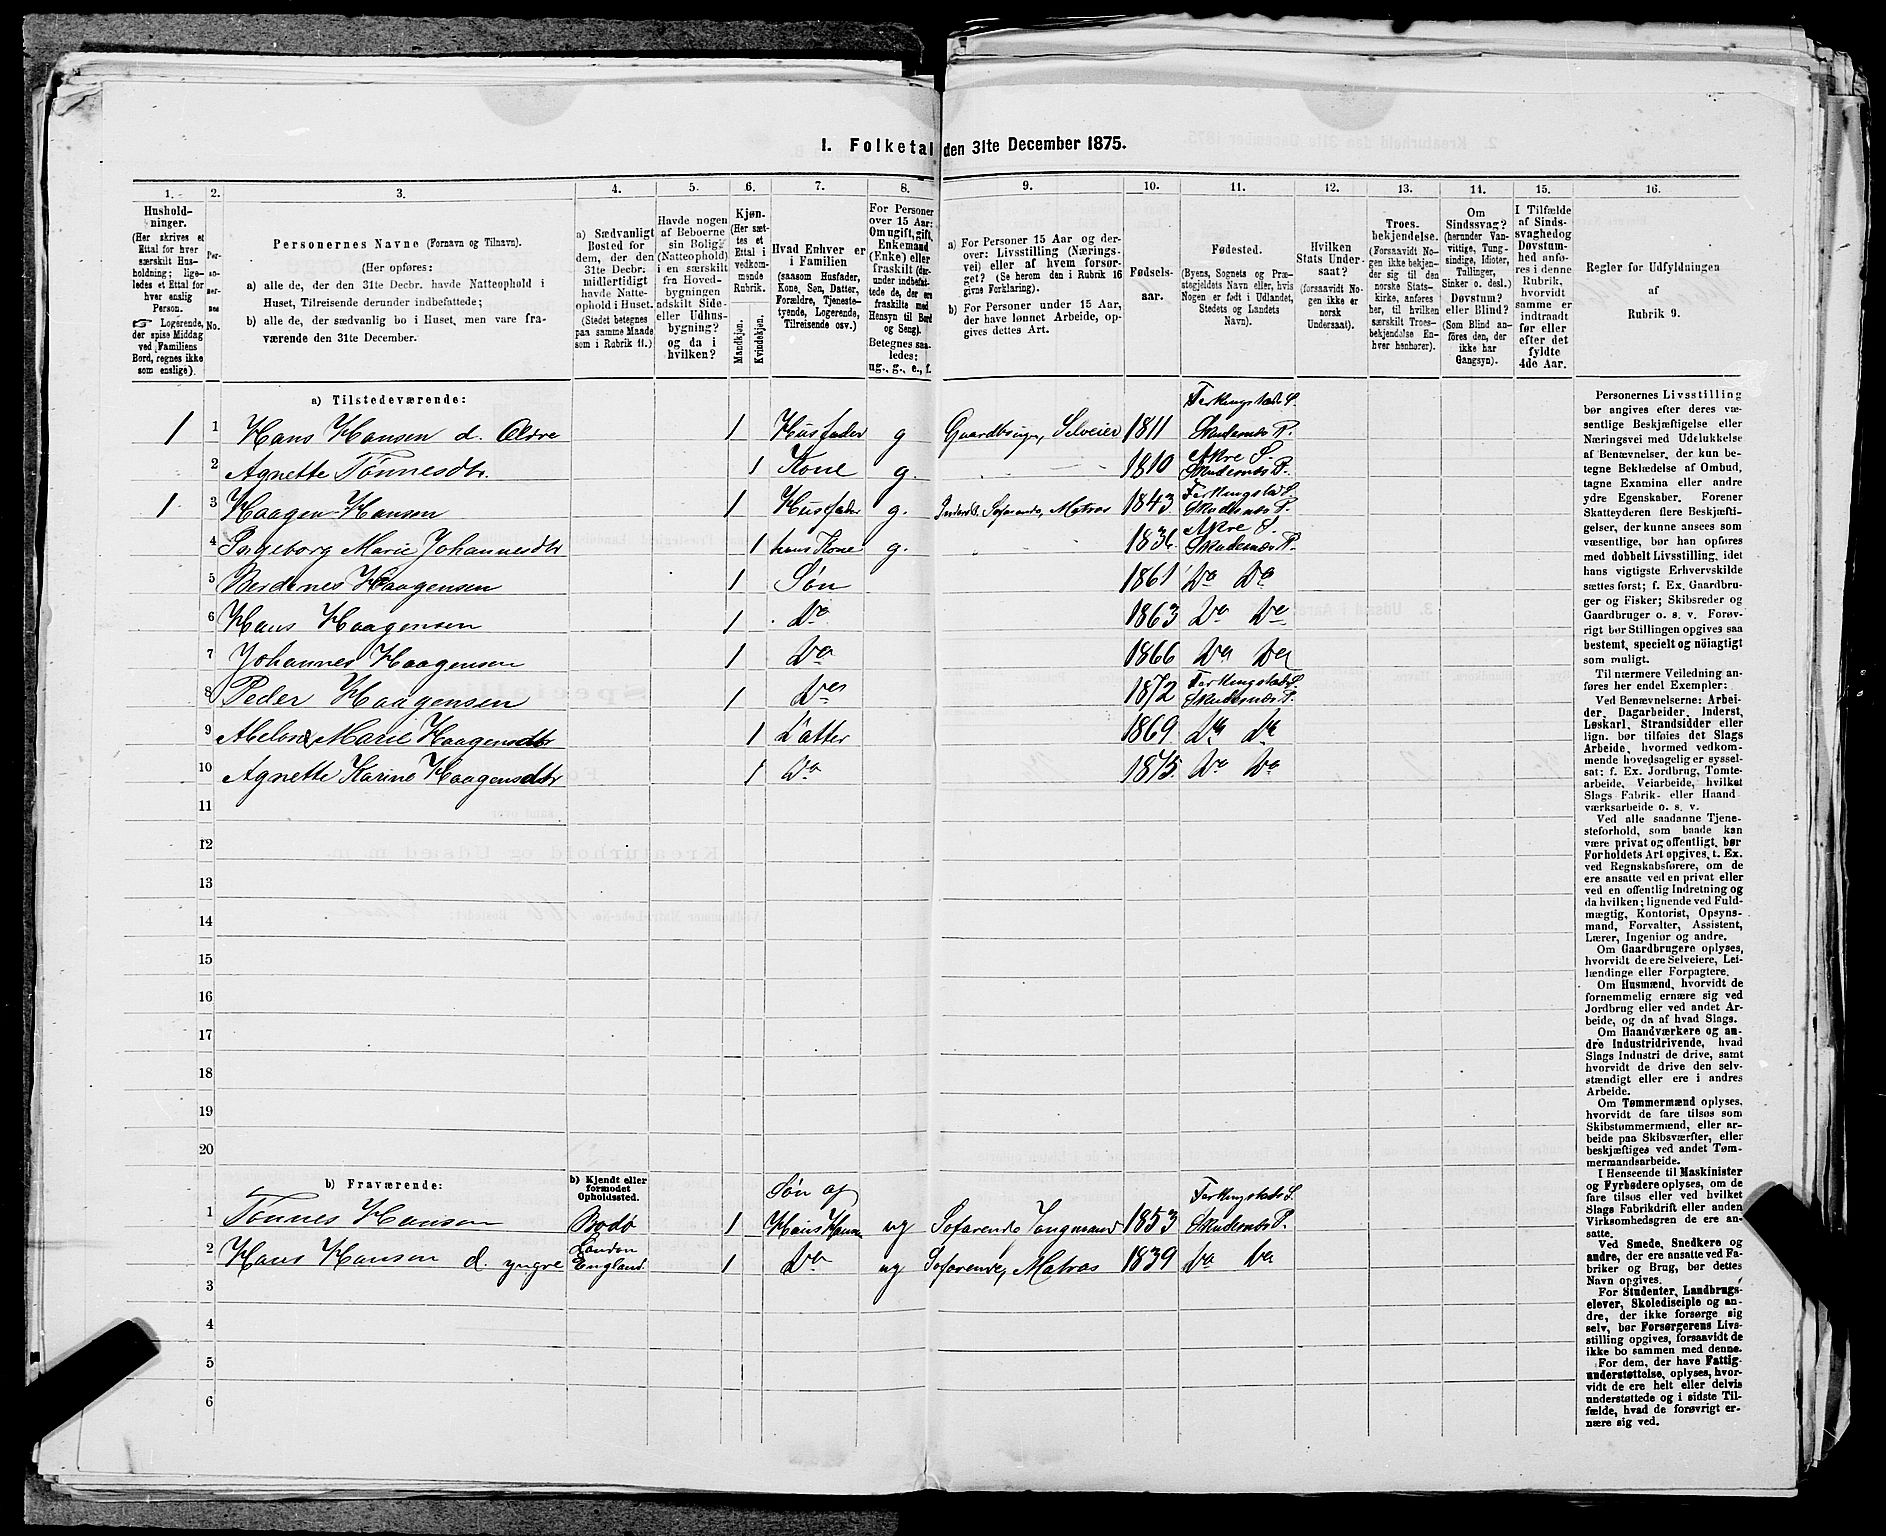 1. Folketal den 31te December 1875.
1. 2. 3. 4. 5. 6. 7. 8. 9. 10. 11. 12. 13. 14. 15. 16.
Hushold-
ninger.
(Her skrives et
Ettal for hver
særskilt Hus-
holdning; lige-
ledes et Ettal for
hver enslig
Person.
☞ Logerende,
der spise Middag
ved Familiens
Bord, regnes ikke
som enslige).
Per-
so-
ner-
nes
No.
Personernes Navne (Fornavn og Tilnavn).
(Her opføres:
a) alle de, der den 31te Decbr. havde Natteophold i
Huset, Tilreisende derunder indbefattede;
b) alle de, der sædvanlig bo i Huset, men vare fra-
værende den 31te December.
a) Sædvanligt
Bosted for
dem, der den
31te Decbr.
midlertidigt
havde Natte-
ophold i Huset.
(Stedet betegnes
paa samme Maade
som i Rubrik 11.)
Havde nogen
af Beboerne
sin Bolig
(Natteophold)
i en særskilt
fra Hoved-
bygningen
adskilt Side-
eller Udhus-
bygning?
og da i
hvilken?
Kjøn.
(Her sæt-
tes et
Ettal i
vedkom-
mende
Rubrik.
Mandkjøn.
Kvindekjøn.
Hvad Enhver er
i Familien
(saasom Husfader,
Kone, Søn, Datter,
Forældre, Tjeneste-
tyende, Logerende,
Tilreisende osv.)
For Personer
over 15 Aar:
Om ugift, gift,
Enkemand
(Enke) eller
fraskilt (der-
under indbefat-
tede de, der ere
fraskilte med
Hensyn til Bord
og Seng).
Betegnes saa-
ledes:
ug., g., e., f.
a) For Personer 15 Aar og der-
over: Livsstilling (Nærings-
vei) eller af hvem forsør-
get? (Se herom den i Rubrik 16
givne Forklaring).
b) For Personer under 15 Aar,
der have lønnet Arbeide, op-
gives dettes Art.
Fødsels-
aar.
Fødested.
(Byens, Sognets og Præ-
stegjeldets Navn eller, hvis
Nogen er født i Udlandet,
Stedets og Landets
Navn).
Hvilken
Stats Under-
saat?
(forsaavidt No-
gen ikke er
norsk
Undersaat).
Troes-
bekjendelse.
(Forsaavidt No-
gen ikke bekjen-
der sig til den
norske Stats-
kirke, anføres
her, til hvilken
særskilt Troes-
bekjendelse En-
hver henhører).
Om
Sindssvag?
(herunder Van-
vittige, Tung-
sindige, Idioter,
Tullinger,
Sinker o. desl.)
Døvstum?
eller Blind?
(Som Blind an-
føres den, der
ikke har
Gangsyn).
I Tilfælde
af Sinds-
svaghed og
Døvstum-
hed anfø-
res i denne
Rubrik,
hvorvidt
samme er
indtraadt
før eller
efter det
fyldte
4de Aar.
Regler for Udfyldningen
af
Rubrik 9.
a) Tilstedeværende:
1 1 Hans Hansen d. Ældre 1 Husfader g Gaardbruger, Selveier 1811 Ferkingstads S. Skudenæs P.
2 Agnette Tønnesdtr. 1 Kone g. 1810 Akre S. Skudenæs P.
1 3 Haagen Hansen 1 Husfader g. Inderst, Søfarende, Matros 1843 Ferkingstad S. Skudesnæs P.
4 Ingeborg Marie Johannesdtr 1 hans Kone g. 1836 Akre S. Skudesnæs P.
5 Berdenes Haagensen 1 Søn 1861 Do Do
6 Hans Haagensen 1 Do 1863 Do Do
7 Johannes Haagensen 1 Do 1866 Do Do
8 Peder Haagensen 1 Do 1872 Ferkingstads S. Skudesnæs P.
9 Marie Haagensdtr 1 Datter 1869 Do Do
10 Agnette Karine Haagensdtr 1 Do 1875 Do Do
11
12
13
14
15
16
17
18
19
20
b) Fraværende:
b) Kjendt eller
formodet
Opholdssted.
1 Tønnes Hansen Bodø 1 Søn af Hans Hansen ug Søfarende Jungmand 1853 Ferkingstads S. Skudenæs P.
2 Hans Hansen d. yngre London England 1 Do ug Søfarende, Matros 1839 Do Do
3
4
5
6
Personernes Livsstilling
bør angives efter deres væ-
sentlige Beskjæftigelse eller
Næringsvei med Udelukkelse
af Benævnelser, der kun be-
tegne Beklædelse af Ombud,
tagne Examina eller andre
ydre Egenskaber. Forener
Skatteyderen flere Beskjæfti-
gelser, der kunne ansees som
væsentlige, bør han opføres
med dobbelt Livsstilling, idet
hans vigtigste Erhvervskilde
sættes først; f. Ex. Gaardbru-
ger og Fisker; Skibsreder og
Gaardbruger o. s. v. Forøv-
rigt bør Stillingen opgives saa
bestemt, specielt og nöiagtigt
som muligt.
Til nærmere Veiledning an-
føres her endel Exempler:
Ved Benævnelserne: Arbei-
der, Dagarbeider, Inderst,
Løskarl, Strandsidder eller
lign. bør tilføies det Slags
Arbeide, hvormed vedkom-
mende hovedsagelig er syssel-
sat; f. Ex. Jordbrug, Tomte-
arbeide, Veiarbeide, hvilket
Slags Fabrik- eller Haand-
værksarbeide o. s. v.
Ved alle saadanne Tjene-
steforhold, som baade kan
være privat og offentligt, bør
Forholdets Art opgives, t. Ex.
ved Regnskabsførere, om de
ere ansatte ved en privat eller
ved en offentlig Indretning og
da hvilken; lignende ved Fuld-
mægtig, Kontorist, Opsyns-
mand, Forvalter, Assistent,
Lærer, Ingeniør og andre.
Om Gaardbrugere oplyses,
hvorvidt de ere Selveiere, Lei-
lændinge eller Forpagtere.
Om Husmænd, hvorvidt de
fornemmelig ernære sig ved
Jordbrug eller ved andet Ar-
beide, og da af hvad Slags.
Om Haandværkere og an-
dre Industridrivende, hvad
Slags Industri de drive, samt
hvorvidt de drive den selv-
stændigt eller ere i andres
Arbeide.
Om Tømmermænd oplyses,
hvorvidt de fare tilsøs som
Skibstømmermænd, eller ar-
beide paa Skibsværfter, eller
beskjæftiges ved andet Tøm-
mermandsarbeide.
I Henseende til Maskinister
og Fyrbødere oplyses, om de
fare tilsøs eller ved hvilket
Slags Fabrikdrift eller anden
Virksomhedsgren de ere an-
satte.
Ved Smede, Snedkere og
andre, der ere ansatte ved Fa-
briker og Brug, bør dettes
Navn opgives.
For Studenter, Landbrugs-
elever, Skoledisciple og an-
dre, der ikke forsørge sig
selv, bør Forsørgerens Livs-
stilling opgives, forsaavidt de
ikke bo sammen med denne.
For dem, der have Fattig-
understøttelse, oplyses, hvor-
vidt de ere helt eller delvis
understøttede og i sidste Til-
fælde, hvad de forøvrigt er-
nære sig ved.